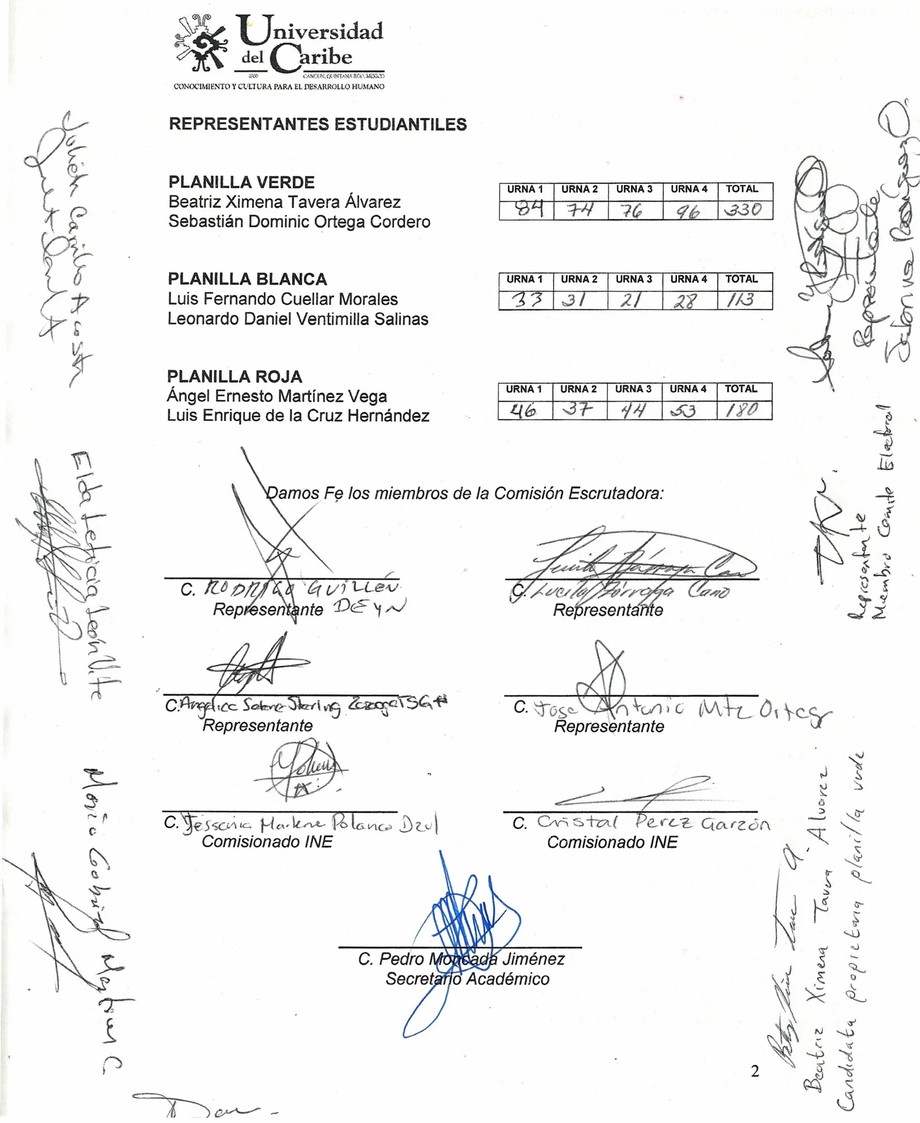 Universidad
del Caribe
2000 CANCÚN, QUINTANA ROO, MÉXICO
CONOCIMIENTO Y CULTURA PARA EL DESARROLLO HUMANO
REPRESENTANTES ESTUDIANTILES
PLANILLA VERDE
Beatriz Ximena Tavera Álvarez
Sebastián Dominic Ortega Cordero
URNA 1 URNA 2 URNA 3 URNA 4 TOTAL
84 74 76 96 330
PLANILLA BLANCA
Luis Fernando Cuellar Morales
Leonardo Daniel Ventimilla Salinas
URNA 1 URNA 2 URNA 3 URNA 4 TOTAL
33 31 21 28 113
PLANILLA ROJA
Ángel Ernesto Martínez Vega
Luis Enrique de la Cruz Hernández
URNA 1 URNA 2 URNA 3 URNA 4 TOTAL
46 37 44 53 180
Damos Fe los miembros de la Comisión Escrutadora:
C. RODRIGO GUILLÉN
Representante DEyN
C. Lucila Párraga Cano
Representante
C. Angélica Selene Sterling
Representante
C. Jose Antonio Mtz Ortega
Representante
C. Marlene Polanco Dzul
Comisionado INE
C. Cristal Perez Garzón
Comisionado INE
C. Pedro Moncada Jiménez
Secretario Académico
2
Julieta Carrillo Acosta
Elda Leticia León Vite
Representante
Representante
Miembro Comite Electoral
Beatriz Ximena Tavera Alvarez
Candidata propietaria planilla verde